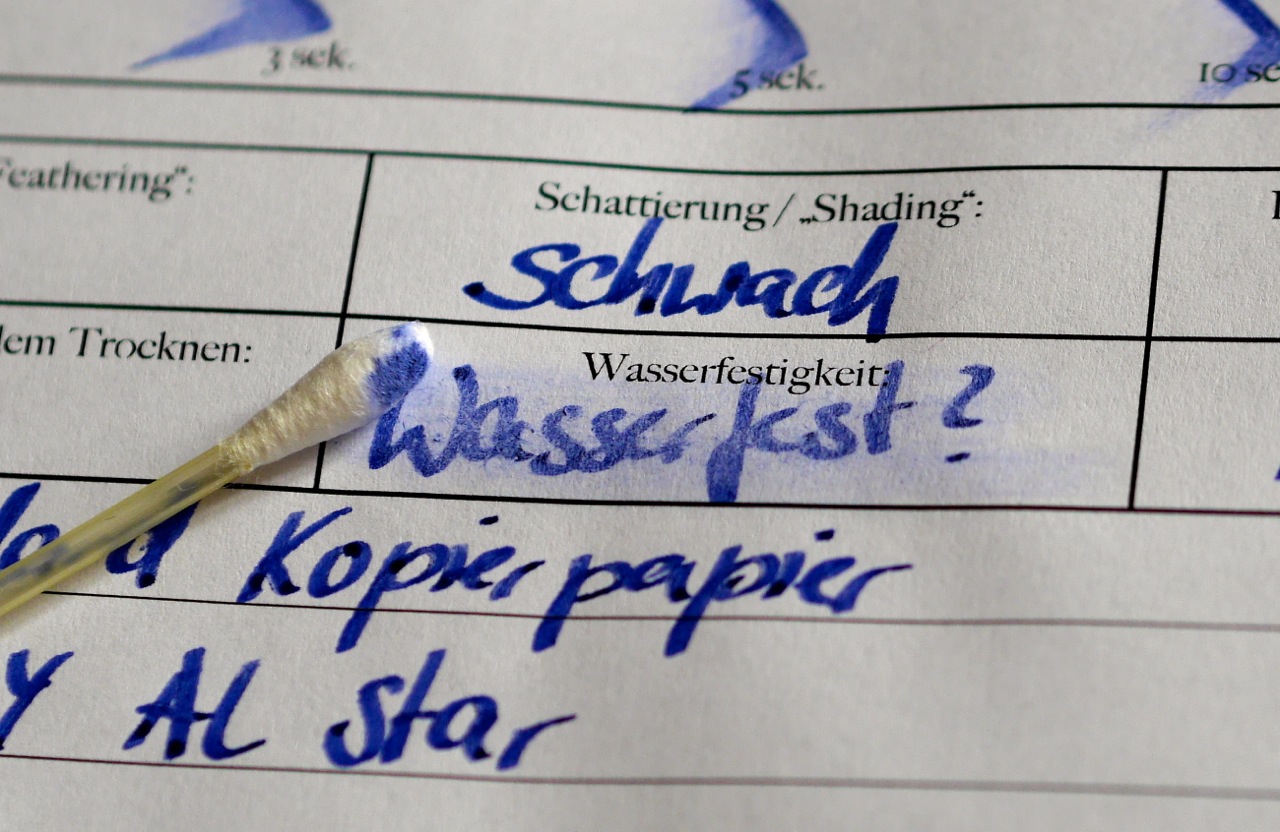 3 sek. 5 sek. 10 se
Feathering“: Schattierung / „Shading“:
schwach
dem Trocknen: Wasserfestigkeit:
Wasserfest?
Kopierpapier
Y AL star